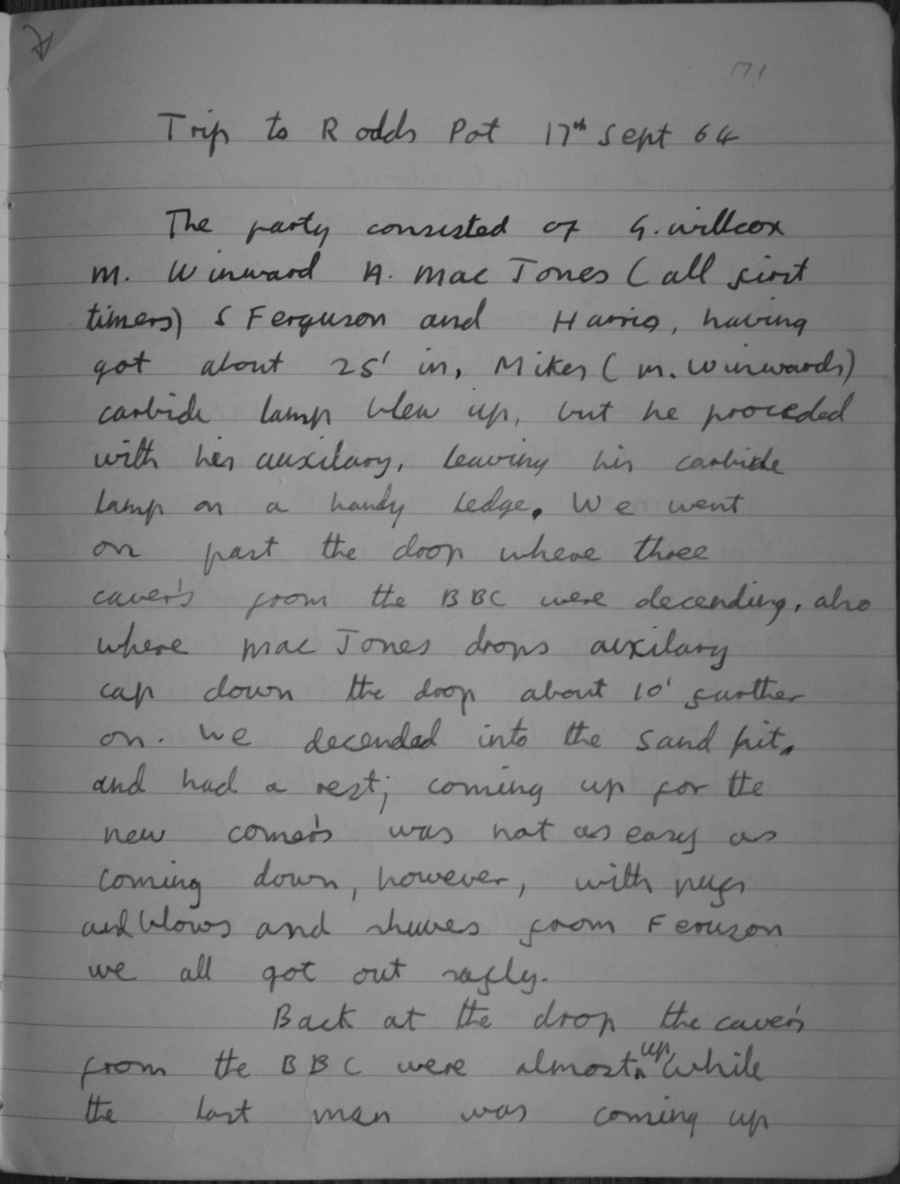 171
Trip to Rodds Pot 17th Sept 64
The party consisted of G. Willcox
M. Winward A. Mac Jones (all first
timers) S Ferguson and Harris, having
got about 25' in, Mikes (M. Winwards)
carbide lamp blew up, but he proceded
with his auxilary, leaving his carbide
lamp on a handy ledge. We went
on past the drop where three
caver's from the BBC were decending, also
where Mac Jones drops auxilary
cap down the drop about 10' further
on. We decended into the Sand pit,
and had a rest; coming up for the
new comer's was not as easy as
coming down, however, with
and blows and shuves from Feruson
we all got out safly.
Back at the drop the caver's
from the BBC were almost up while
the last man was coming up